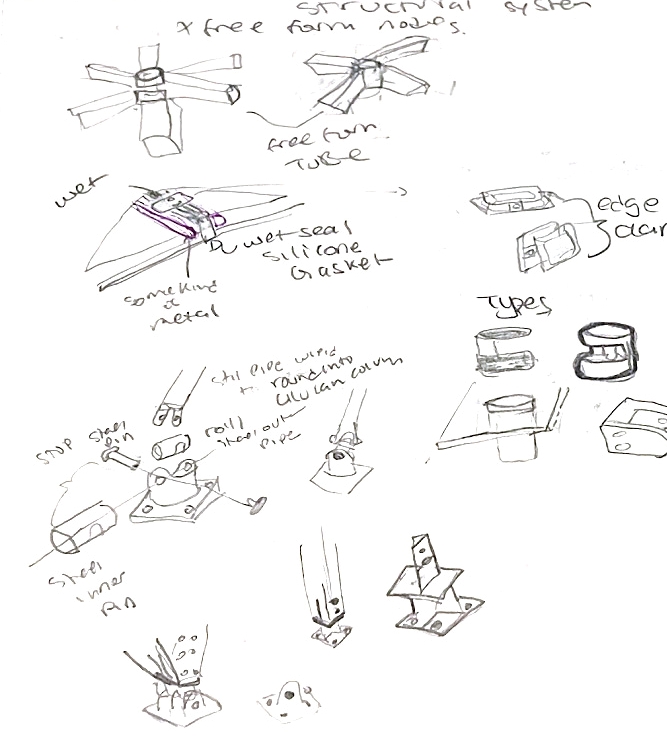 structural system
x free form nodes.
free form
TUBE
wet
wet seal
silicone
Gasket
some kind
of
metal
edge
Types
pipe
round into
column
steel
pin
roll
steel outer
pipe
STOP
steel
inner
pin